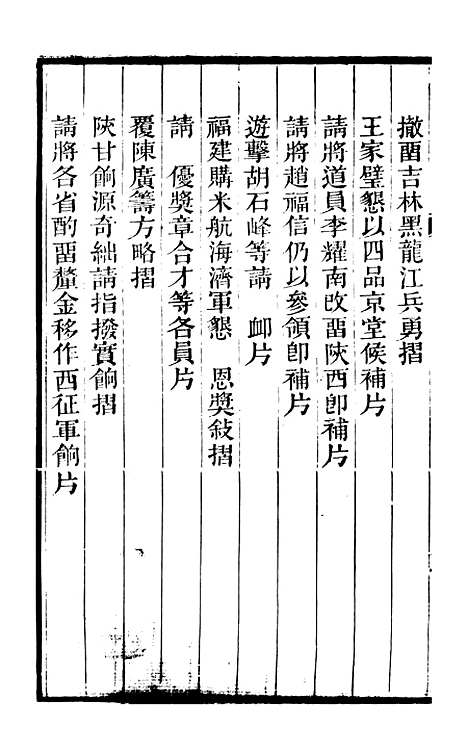 撤畱吉林黑龍江兵勇摺
王家璧懇以四品京堂候補片
請將道員李耀南改畱陝西卽補片
請將趙福信仍以參領卽補片
遊擊胡石峰等請　䘏片
福建購米航海濟軍懇　恩獎敍摺
請　優獎章合才等各員片
覆陳廣籌方略摺
陝甘餉源奇絀請指撥實餉摺
請將各省酌畱釐金移作西征軍餉片